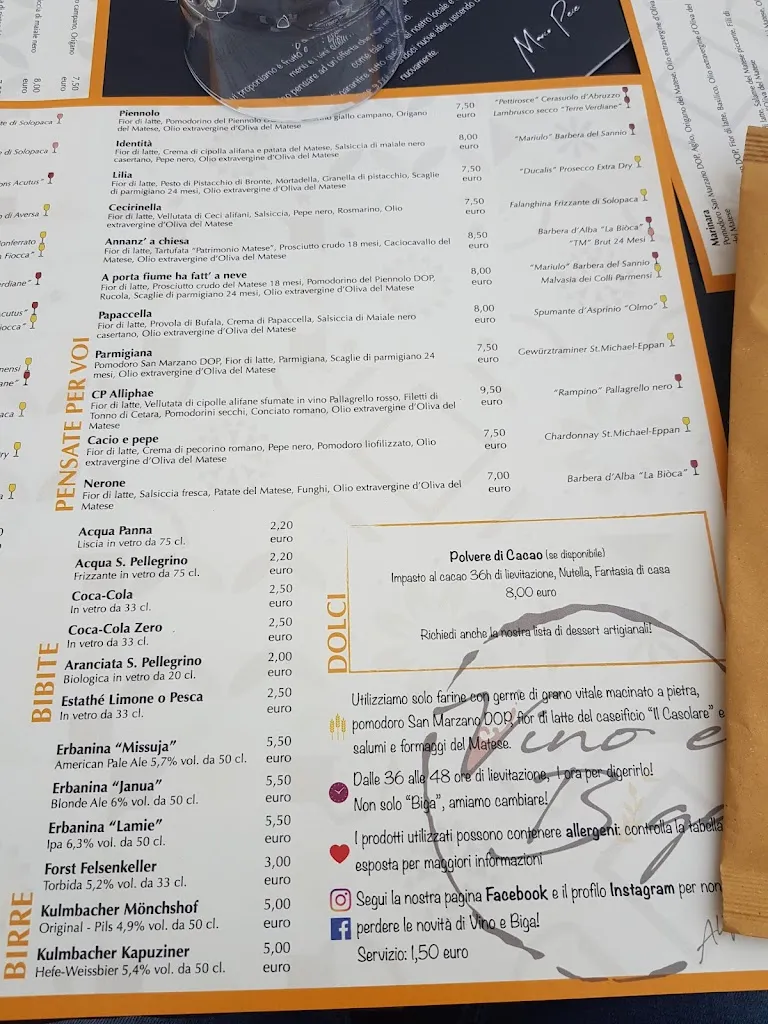 campano, Origano
7,50
euro
8,00
euro
Marco Pepe
te di Solopaca
e di Solopaca
ons Acutus"
n di Aversa
Monferrato
Fiocca"
erdiane"
cutus"
iocca"
mensi
ane"
aca
ry
Marinara
PENSATE PER VOI
Piennolo
Fior di latte, Pomodorino del Piennolo giallo campano, Origano
del Matese, Olio extravergine d'Oliva del Matese
7,50
euro
"Pettirosce" Cerasuolo d'Abruzzo
Lambrusco secco "Terre Verdiane"
Identità
Fior di latte, Crema di cipolla alifana e patata del Matese, Salsiccia di maiale nero
casertano, Pepe nero, Olio extravergine d'Oliva del Matese
8,00
euro
"Mariulo" Barbera del Sannio
Lilia
Fior di latte, Pesto di Pistacchio di Bronte, Mortadella, Granella di pistacchio, Scaglie
di parmigiano 24 mesi, Olio extravergine d'Oliva del Matese
7,50
euro
"Ducalis" Prosecco Extra Dry
Cecirinella
Fior di latte, Vellutata di Ceci alifani, Salsiccia, Pepe nero, Rosmarino, Olio
extravergine d'Oliva del Matese
7,50
euro
Falanghina Frizzante di Solopaca
Annanz' a chiesa
Fior di latte, Tartufata "Patrimonio Matese", Prosciutto crudo 18 mesi, Caciocavallo del
Matese, Olio extravergine d'Oliva del Matese
8,50
euro
Barbera d'Alba "La Biòca"
"TM" Brut 24 Mesi
A porta fiume ha fatt' a neve
Fior di latte, Prosciutto crudo del Matese 18 mesi, Pomodorino del Piennolo DOP,
Rucola, Scaglie di parmigiano 24 mesi, Olio extravergine d'Oliva del Matese
8,00
euro
"Mariulo" Barbera del Sannio
Malvasia dei Colli Parmensi
Papaccella
Fior di latte, Provola di Bufala, Crema di Papaccella, Salsiccia di Maiale nero
casertano, Olio extravergine d'Oliva del Matese
8,00
euro
Spumante d'Asprinio "Olmo"
Parmigiana
Pomodoro San Marzano DOP, Fior di latte, Parmigiana, Scaglie di parmigiano 24
mesi, Olio extravergine d'Oliva del Matese
7,50
euro
Gewürztraminer St.Michael-Eppan
CP Alliphae
Fior di latte, Vellutata di cipolle alifane sfumate in vino Pallagrello rosso, Filetti di
Tonno di Cetara, Pomodorini secchi, Conciato romano, Olio extravergine d'Oliva del
Matese
9,50
euro
"Rampino" Pallagrello nero
Cacio e pepe
Fior di latte, Crema di pecorino romano, Pepe nero, Pomodoro liofilizzato, Olio
extravergine d'Oliva del Matese
7,50
euro
Chardonnay St.Michael-Eppan
Nerone
Fior di latte, Salsiccia fresca, Patate del Matese, Funghi, Olio extravergine d'Oliva del
Matese
7,00
euro
Barbera d'Alba "La Biòca"
BIBITE
Acqua Panna
Liscia in vetro da 75 cl.
2,20
euro
Acqua S. Pellegrino
Frizzante in vetro da 75 cl.
2,20
euro
Coca-Cola
In vetro da 33 cl.
2,50
euro
Coca-Cola Zero
In vetro da 33 cl.
2,50
euro
Aranciata S. Pellegrino
Biologica in vetro da 20 cl.
2,00
euro
Estathé Limone o Pesca
In vetro da 33 cl.
2,50
euro
BIRRE
Erbanina "Missuja"
American Pale Ale 5,7% vol. da 50 cl.
5,50
euro
Erbanina "Janua"
Blonde Ale 6% vol. da 50 cl.
5,50
euro
Erbanina "Lamie"
Ipa 6,3% vol. da 50 cl.
5,50
euro
Forst Felsenkeller
Torbida 5,2% vol. da 33 cl.
3,00
euro
Kulmbacher Mönchshof
Original - Pils 4,9% vol. da 50 cl.
5,00
euro
Kulmbacher Kapuziner
Hefe-Weissbier 5,4% vol. da 50 cl.
5,00
euro
DOLCI
Polvere di Cacao (se disponibile)
Impasto al cacao 36h di lievitazione, Nutella, Fantasia di casa
8,00 euro
Richiedi anche la nostra lista di dessert artigianali!
Utilizziamo solo farine con germe di grano vitale macinato a pietra,
pomodoro San Marzano DOP, fior di latte del caseificio "Il Casolare" e
salumi e formaggi del Matese.
Dalle 36 alle 48 ore di lievitazione, 1 ora per digerirlo!
Non solo "Biga", amiamo cambiare!
I prodotti utilizzati possono contenere allergeni: controlla la tabella
esposta per maggiori informazioni
Segui la nostra pagina Facebook e il profilo Instagram per non
perdere le novità di Vino e Biga!
Servizio: 1,50 euro
Vino e
Biga